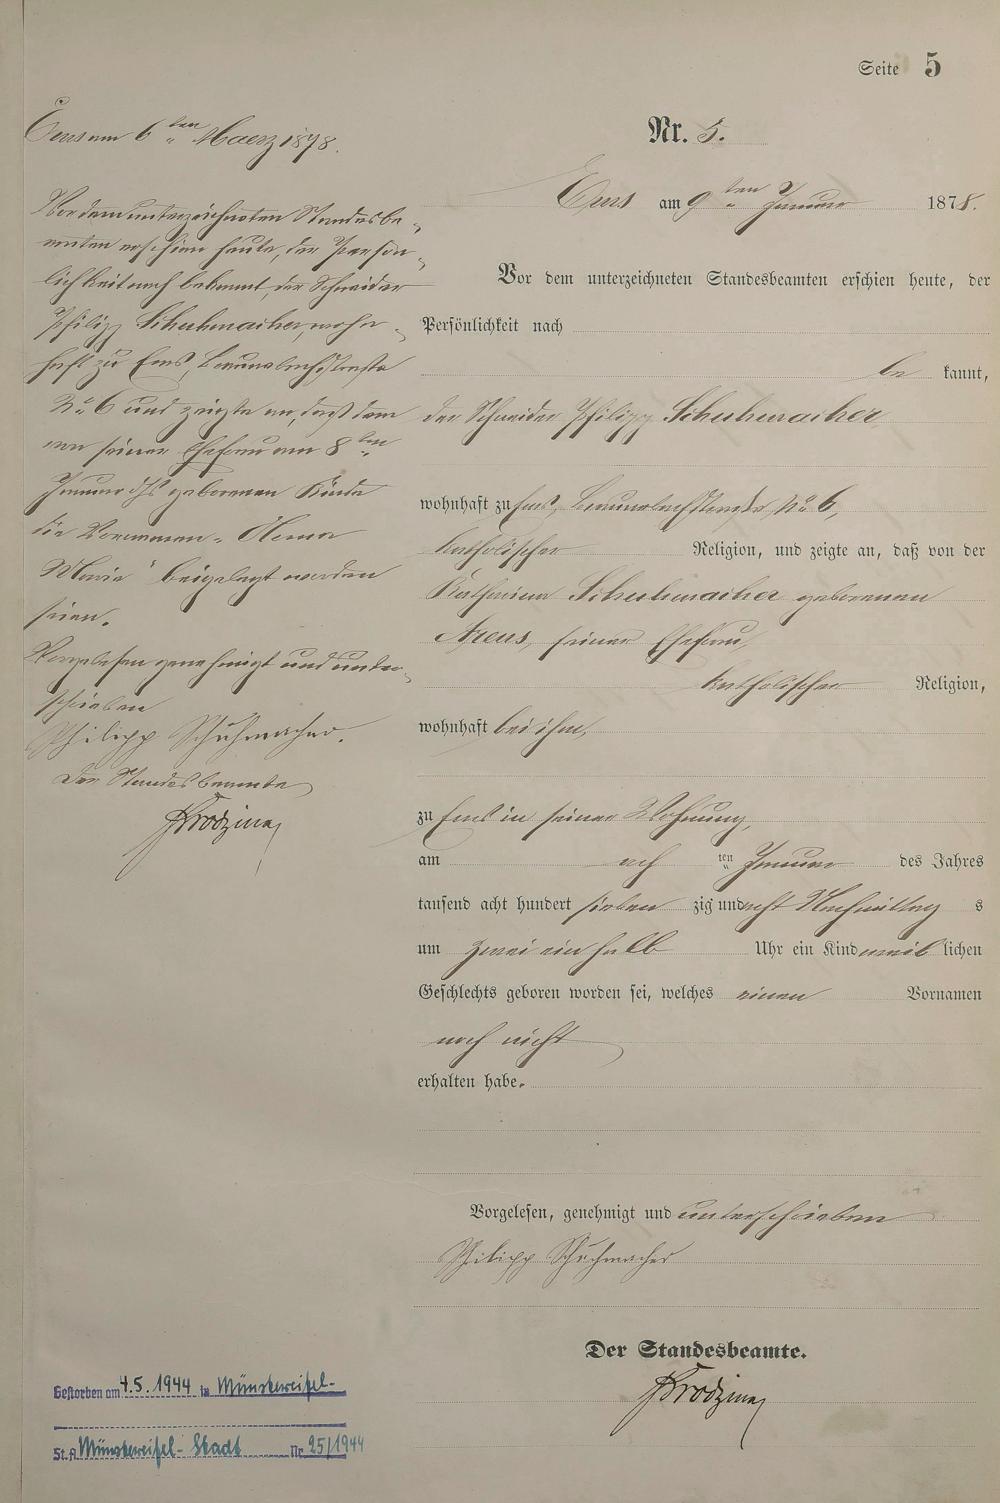 Seite 5
Nr. 5.
Ems am 9ten Januar 1878.
Vor dem unterzeichneten Standesbeamten erschien heute, der
Persönlichkeit nach
be kannt,
der Schneider Philipp Schuhmacher
wohnhaft zu Ems, Braunebachstraße No 6,
katholischer Religion, und zeigte an, daß von der
Katharina Schuhmacher geborenen
seiner Ehefrau,
katholischer Religion,
wohnhaft bei ihm,
zu Ems in seiner Wohnung,
am ach ten Januar des Jahres
tausend acht hundert sieben zig und acht Nachmittag s
um zwei ein halb Uhr ein Kind weib lichen
Geschlechts geboren worden sei, welches einen Vornamen
noch nicht
erhalten habe.
Vorgelesen, genehmigt und unterschrieben
Philipp Schuhmacher
Der Standesbeamte.
Ems am 6ten Maerz 1878.
Vor dem unterzeichneten Standesbe-
amten erschien heute, der Persön-
lichkeit nach bekannt, der Schneider
Philipp Schuhmacher, wohn-
haft zu Ems, Braunebachstraße
No 6 und zeigte an, daß dem
von seiner Ehefrau am 8ten
Januar ds geborenen Kinde
die Vornamen
Maria" beigelegt worden
seien.
Vorgelesen genehmigt und unter-
schrieben
Philipp Schuhmacher.
Der Standesbeamte
Gestorben am 4.5.1944 in Münstereifel-
St.A. Münstereifel-Stadt Nr 25/1944